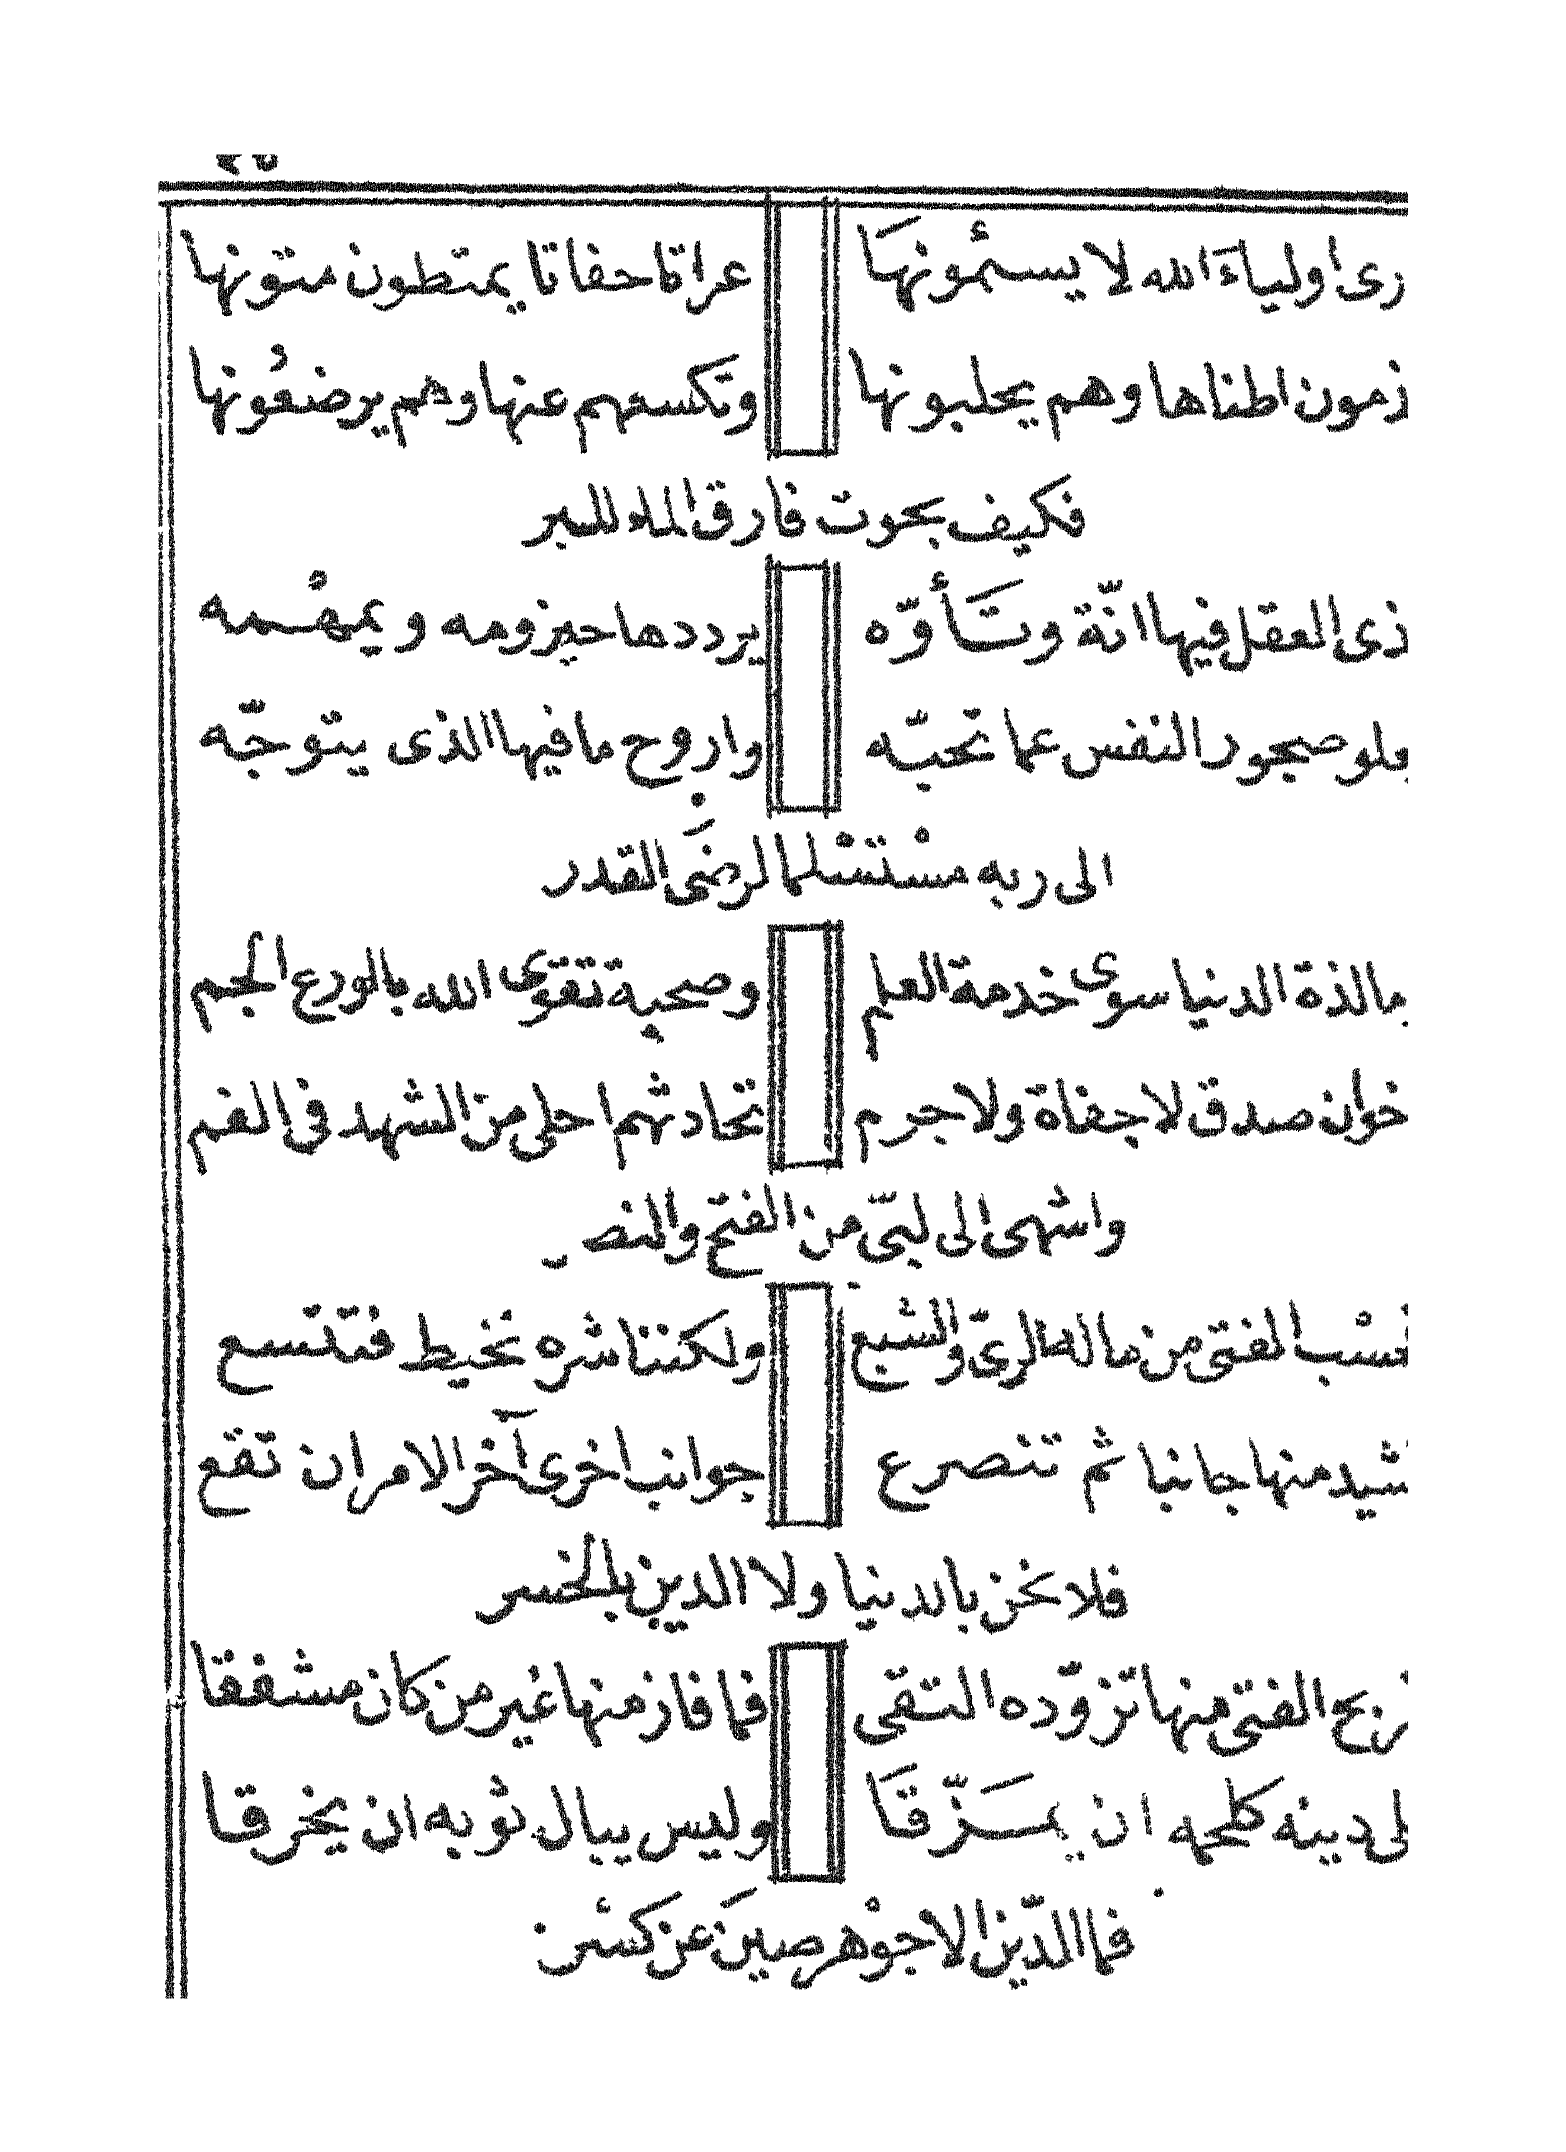 اولياءَ الله لا يسئمونهَا عراتا حفاتا يمتطون متونها
اطناها وهم يحلبونها وتكسعهم عنها وهم يرضعُونها
فكيف بحوت فارق الماء للبر
ذى العقل فيها انّة وتَأوّه يرددها حيزومه ويمهْمه
صجور النفس عما تحبّه واروح ما فيها الذى يتوجّه
الى ربه مسْتسْلما لرضَى القدر
لذة الدنيا سوى خدمة العلم وصحبة تقوى الله بالورع الجم
صدق لا جفاة ولا جرم تحادثهم احلى من الشهد فى الفم
واشهى الى لبّى من الفتح والنصر
الفتى من ماله الرىّ والشبع ولكننا شره نخيط فتتسع
منها جانبا ثم تنصرع جوانب اخرى آخر الامر ان تقع
فلا نحن بالدنيا ولا الدين بالخسر
الفتى منها تزوّده التقى فما فاز منها غير من كان مشفقا
دينه كلحمه ان يمَزّقَا وليس يبال ثوبه ان يخرقا
فما الدّين الا جوْهر صينَ عن كسْر